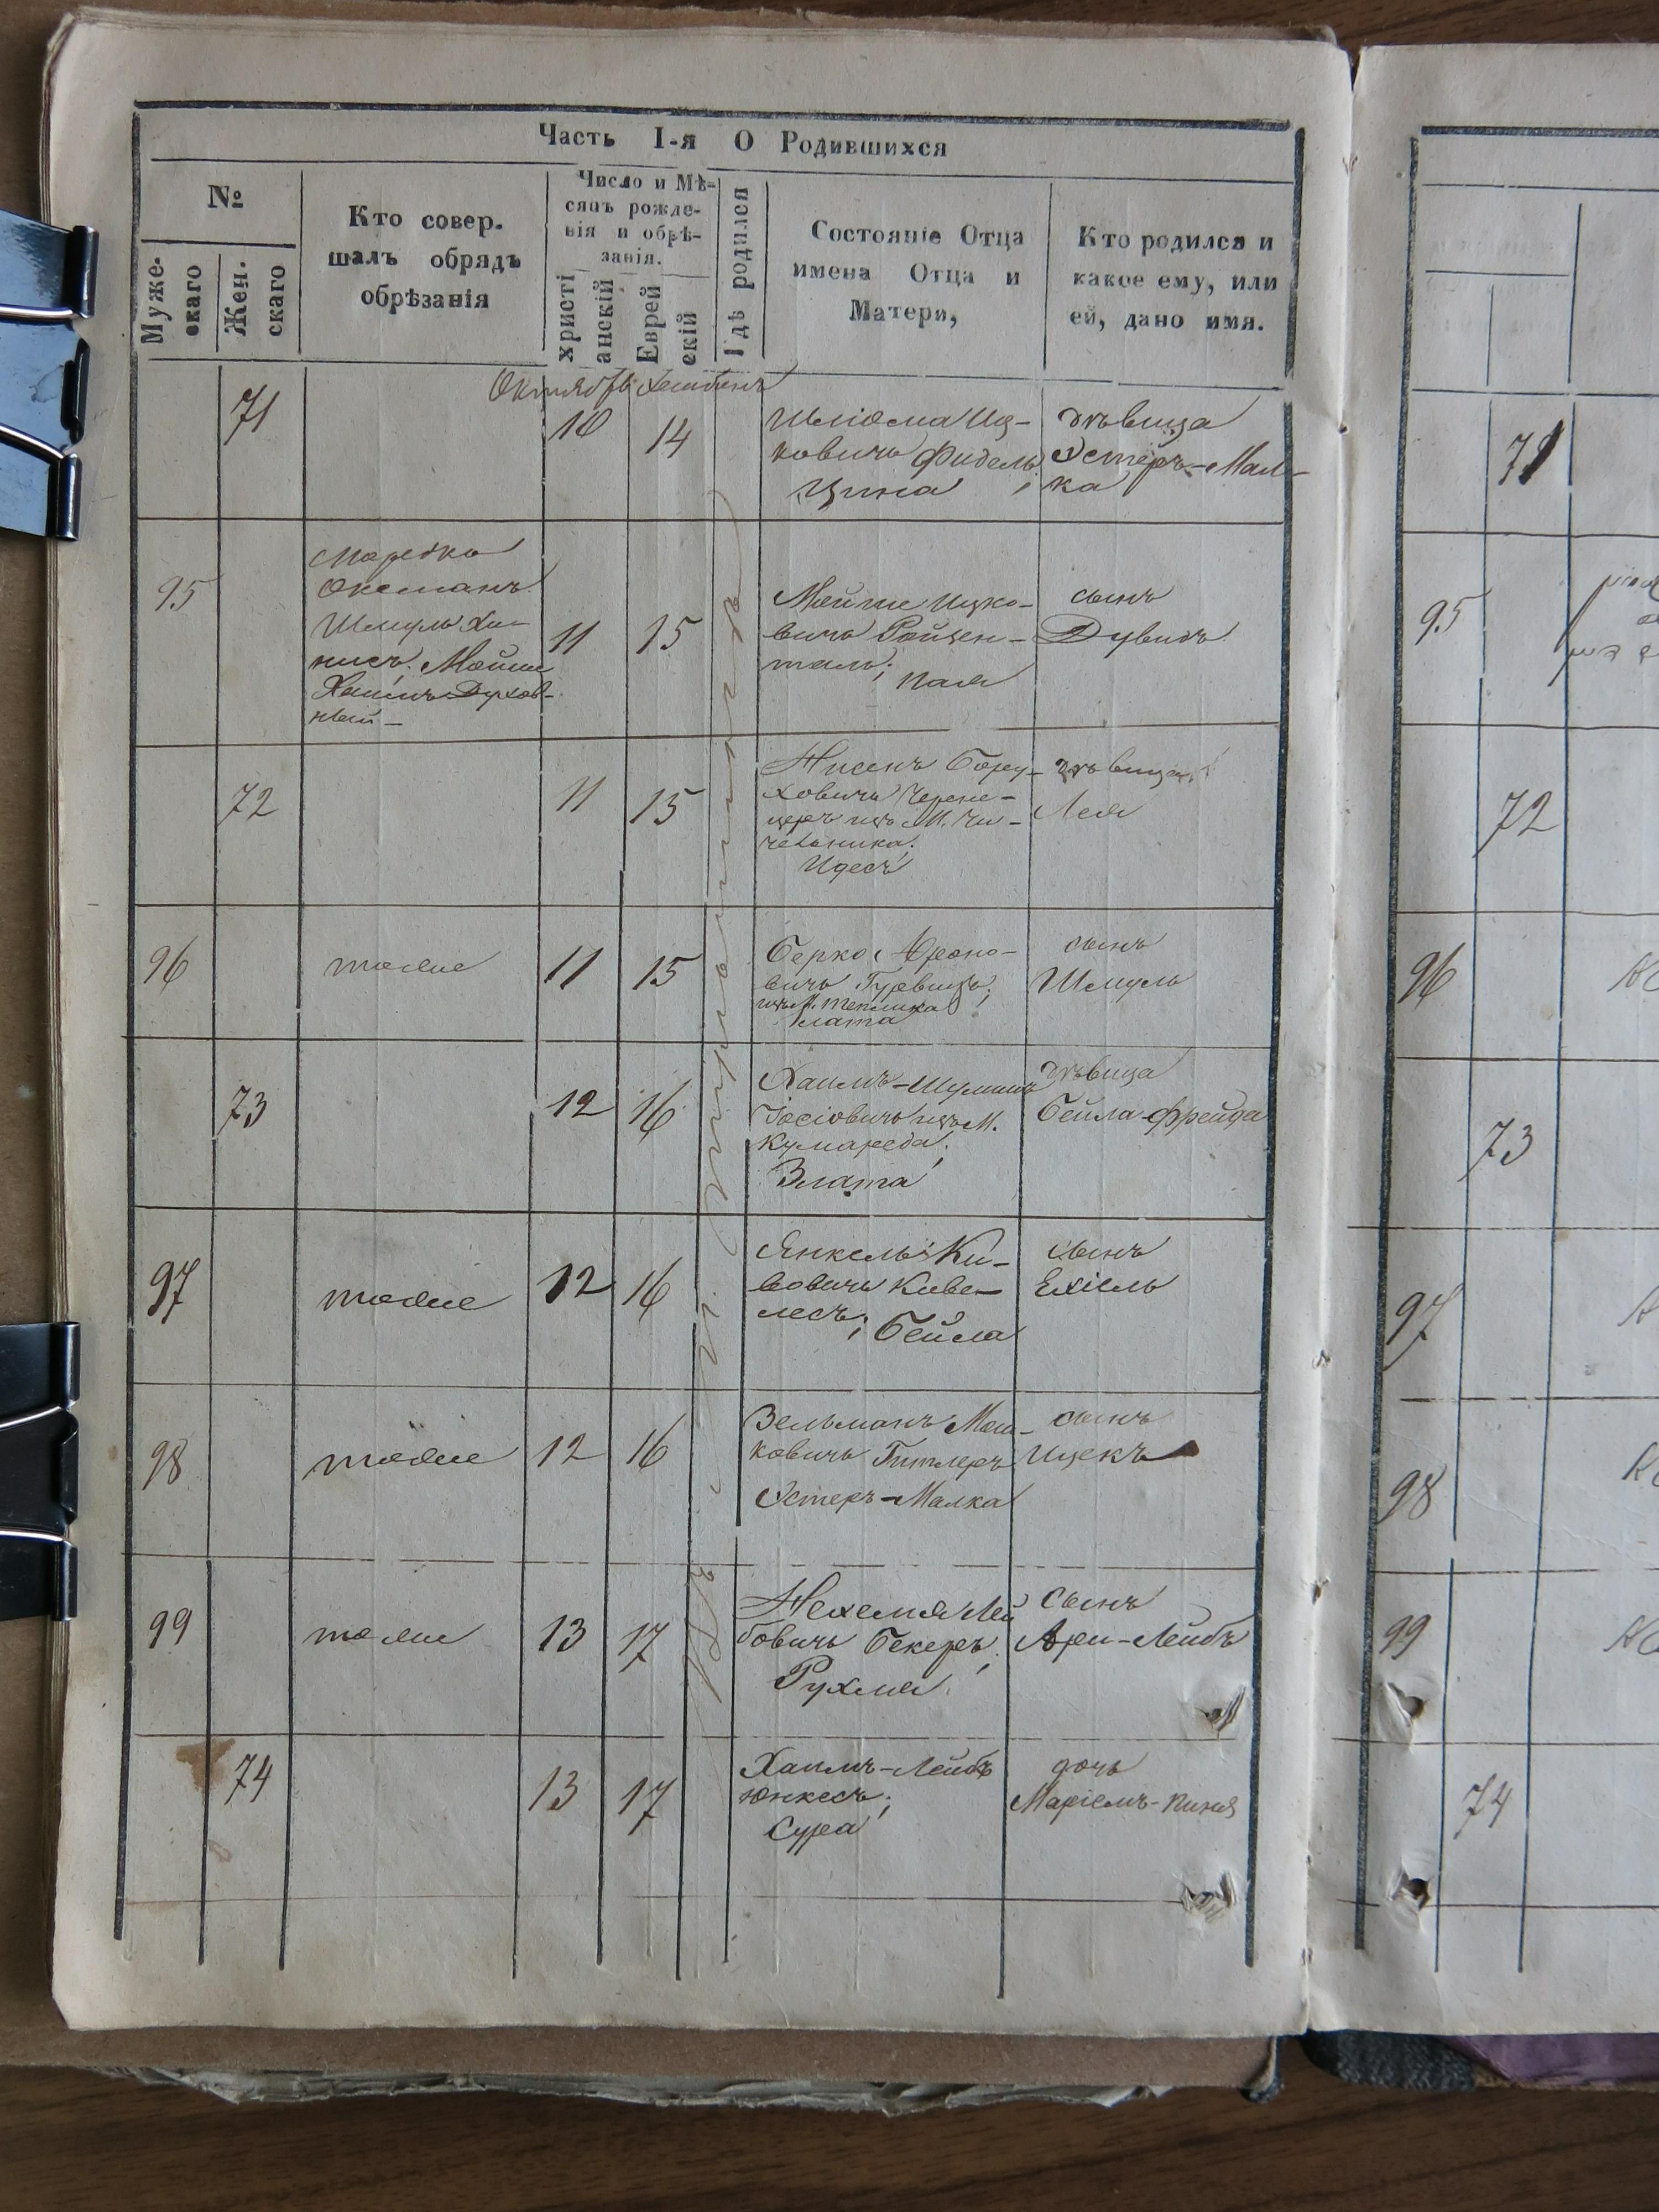 Часть I-я О Родившихся
№
Муже-
скаго
Жен.
скаго
Кто совер-
шалъ обрядъ
обрѣзанія
Число и Мѣ-
сяцъ рожде-
нія и обрѣ-
занія.
христі
анскій
Еврей
скій
Гдѣ родился
Состояніе Отца
имена Отца и
Матери,
Кто родился и
какое ему, или
ей, дано имя.
Октябрь Хешванъ
71
10
14
Шліома Иц-
ковичъ Фидель;
Цина
дѣвица
Эстеръ-Мал-
ка
95
Мордко
Оксманъ
Шмуль Хи-
нисъ. Мойше
Хаимъ Духов-
ный-
11
15
Мойше Ицко-
вичъ Ройзен-
таль;
Пая
сынъ
Дувидъ
72
11
15
Нисенъ Бору-
ховичъ
изъ М. Чи-
чельника;
Идесъ
дѣвица
Лея
96
тоже
11
15
Берко Ароно-
вичъ Гурвицъ;
изъ М. Теплика
Злата
сынъ
Шмуль
73
12
16
Хаимъ-Шулимъ
Іосіовичъ изъ М.
Злата
дѣвица
Бейла-Фрейда
97
тоже
12
16
Янкель Ки-
вовичъ Киве-
лесъ; Бейла
сынъ
Ехіель
98
тоже
12
16
Зельманъ Мош-
ковичъ Гитлеръ
Эстеръ-Малка
сынъ
Ицекъ
99
тоже
13
17
Нехемія Лей
бовичъ Бекеръ;
Рухля
сынъ
Ари-Лейбъ
74
13
17
Хаимъ-Лейбъ
Юнкесъ;
Сура
дочь
Маріемъ-Пиня
71
95
72
96
73
97
98
99
74